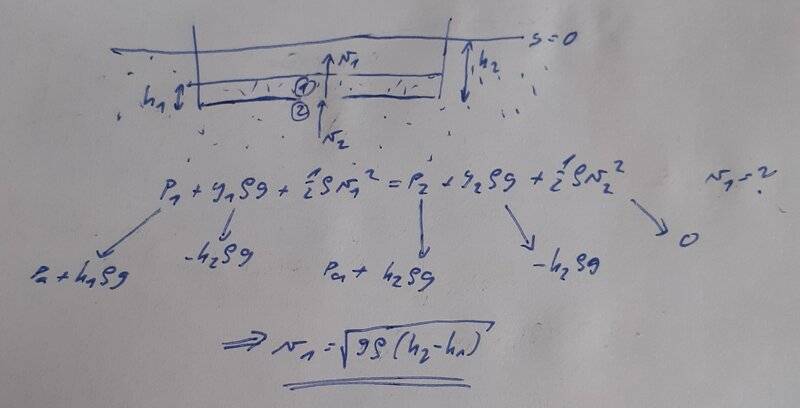 s=0
v₁
h₂
h₁
①
②
v₂
p₁ + y₁ρg + ½ρv₁² = p₂ + y₂ρg + ½ρv₂²  v₁ = ?
pₐ + h₁ρg  -h₂ρg  pₐ + h₂ρg  -h₂ρg  0
⇒ v₁ = √(gρ(h₂-h₁))